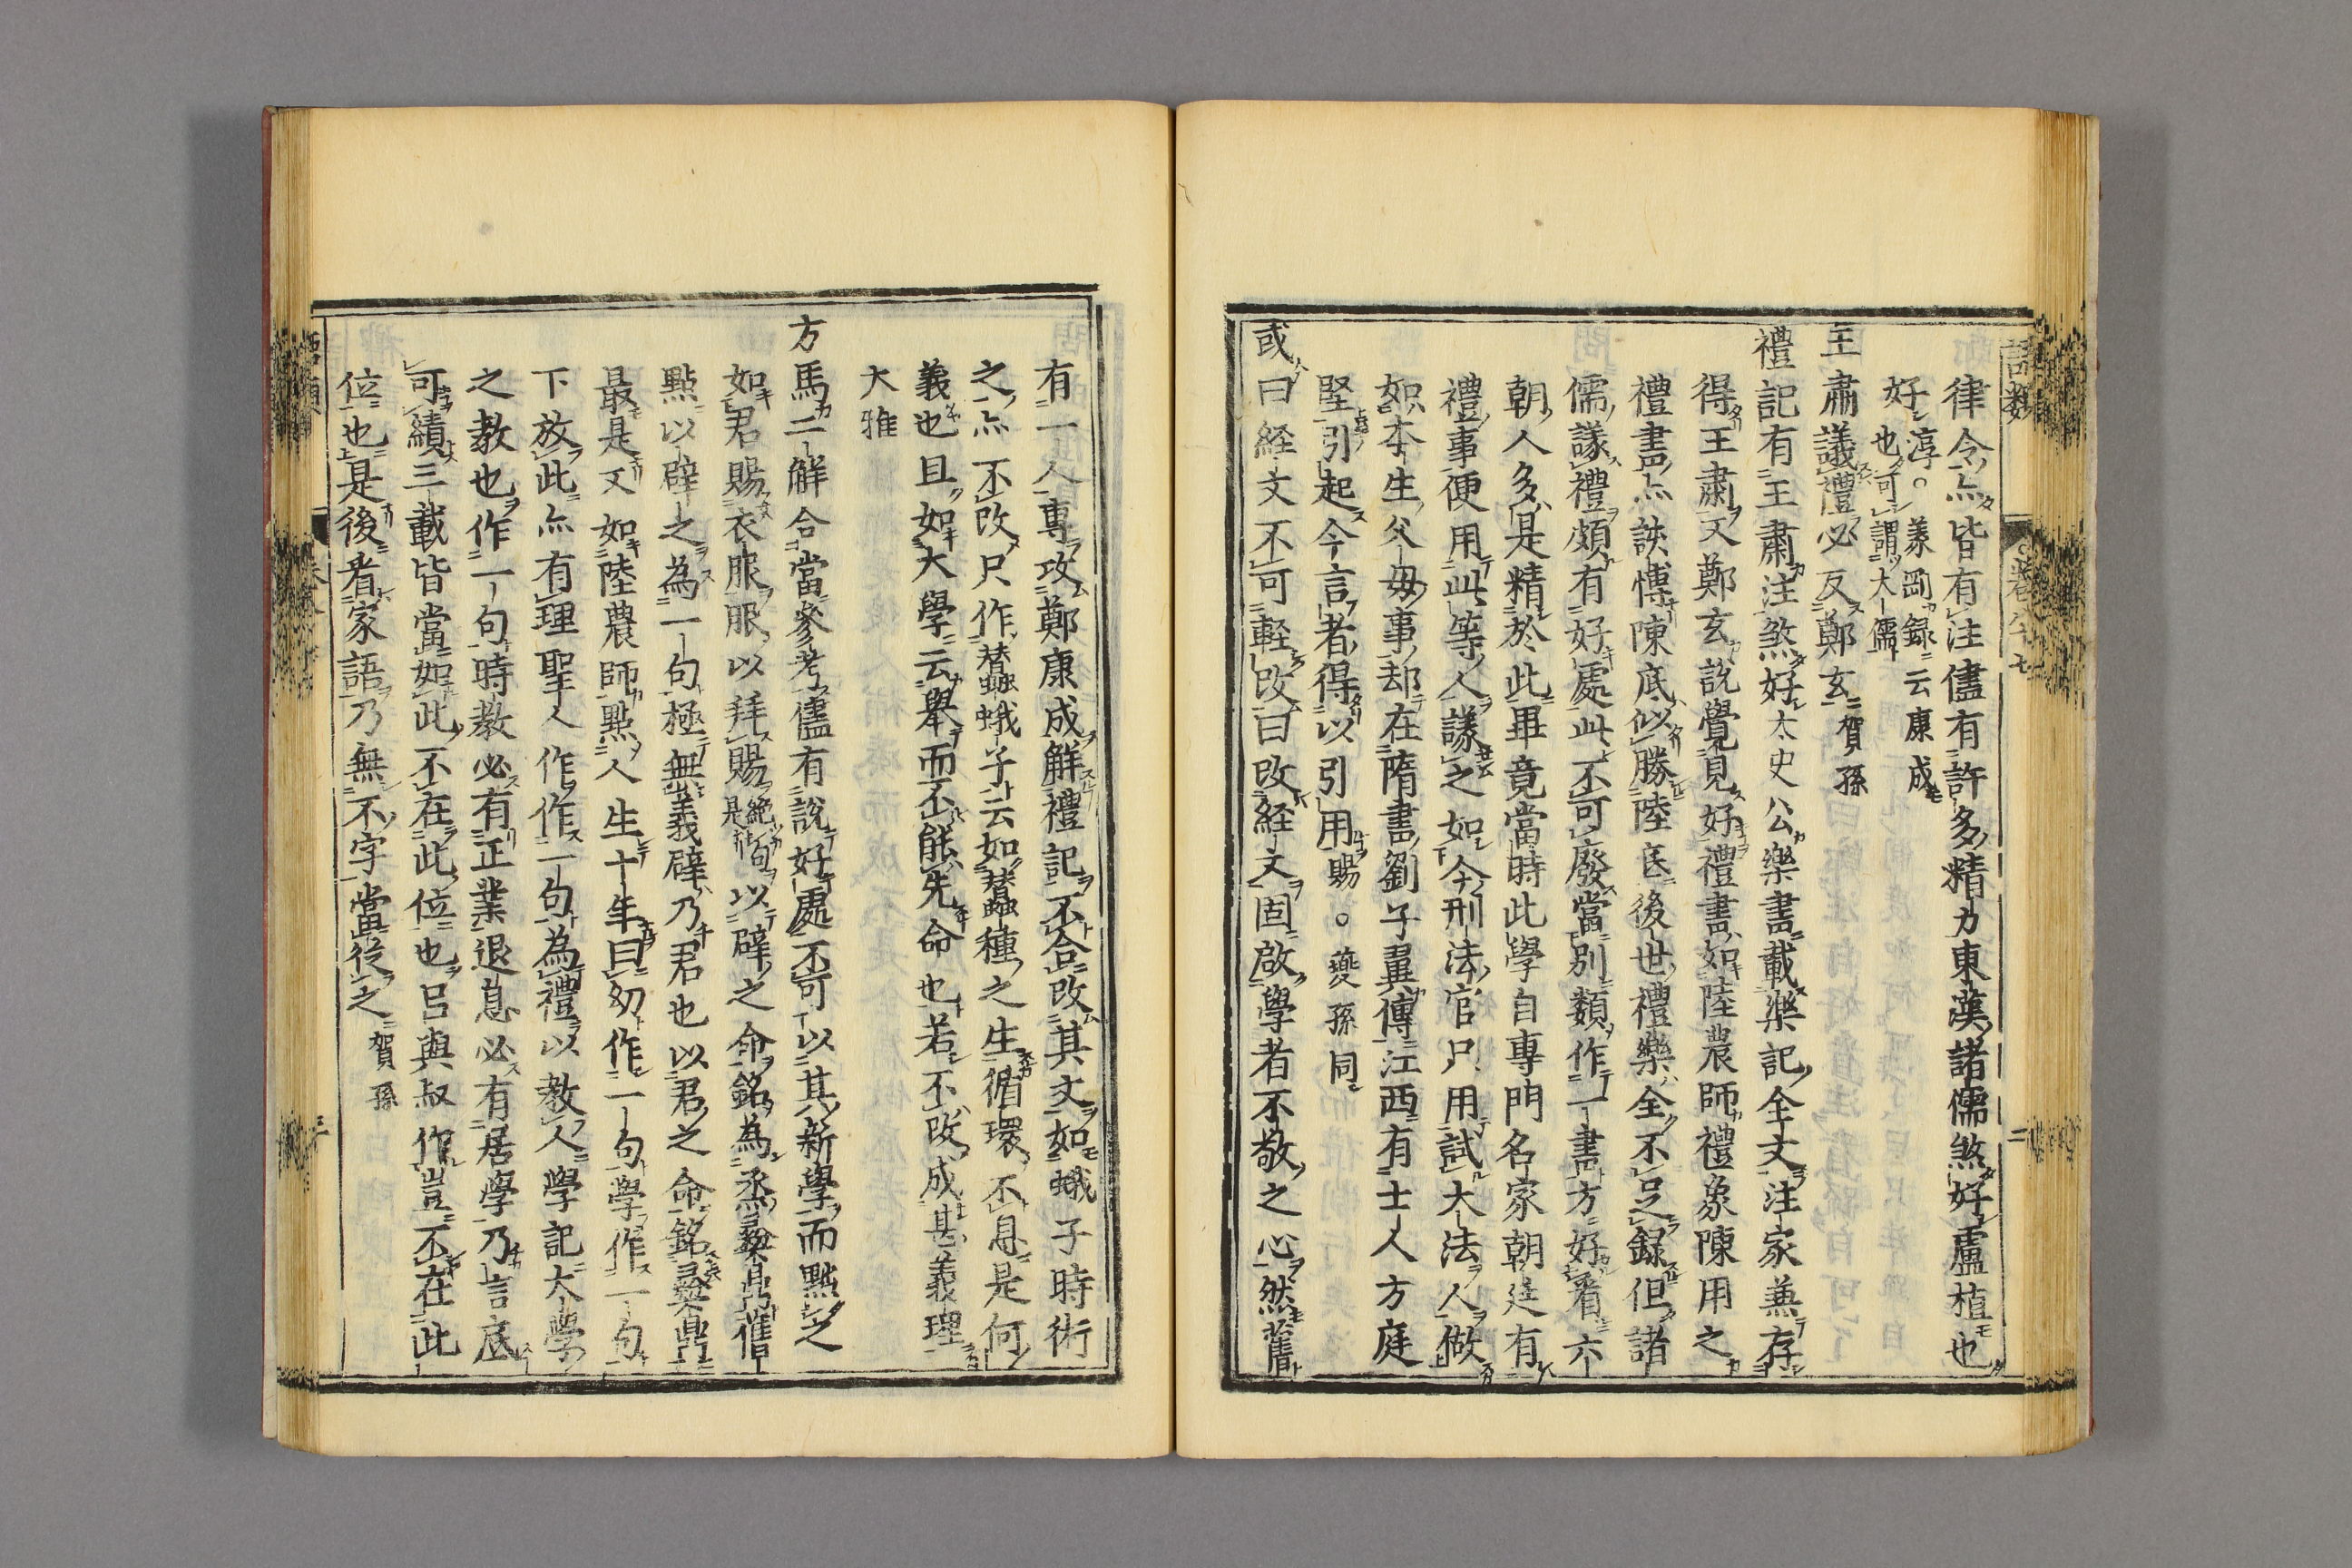 語類
卷八十七
二
律令亦皆有注儘有許多精力東漢諸儒煞好盧植也
好淳。義剛録云康成
也可謂大儒
王肅議禮必反鄭玄賀孫
禮記有王肅注煞好太史公樂書載樂記全文注家兼存
得王肅又鄭玄說覺見好禮書如陸農師禮象陳用之
禮書亦該愽陳底似勝陸底後世禮樂全不足録但諸
儒議禮頗有好處此不可廢當別類作一書方好看六
朝人多是精於此畢竟當時此學自專門名家朝廷有
禮事便用此等人議之如今刑法官只用試大法人做
如本生父母事却在隋書劉子翼傳江西有士人方庭
堅引起今言者得以引用賜。夔孫同
或曰経文不可輕改曰改経文固啟學者不敬之心然舊
有一人專攻鄭康成解禮記不合改其文如蛾子時術
之亦不改只作蠶蛾子云如蠶種之生循環不息是何
義也且如大學云舉而不能先命也若不改成甚義理
大雅
方馬二解合當參考儘有說好處不可以其新學而黜之
如君賜衣服服以拜賜絶句是以辟之命銘為烝彝鼎舊
點以辟之為一句極無義辟乃君也以君之命銘彝鼎
最是又如陸農師點人生十年曰幼作一句學作一句
下放此亦有理聖人作作一句為禮以教人學記大學
之教也作一句時教必有正業退息必有居學乃言底
可績三載皆當如此不在此位也呂與叔作豈不在此
位也是後看家語乃無不字當從之賀孫
語類
三